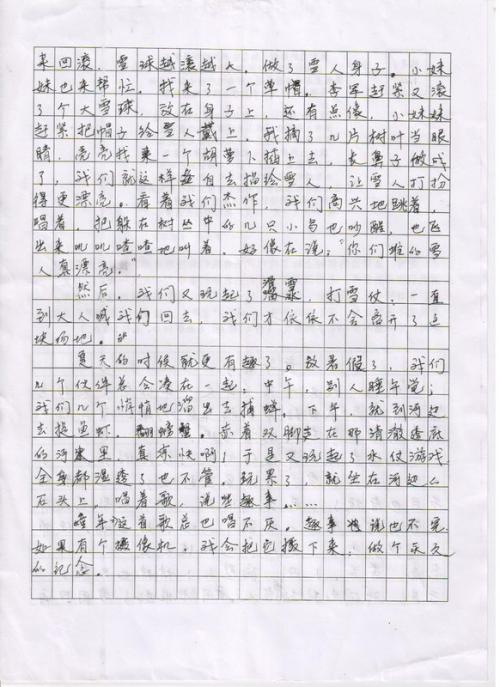 来回滚，雪球越滚越大。做了雪人身子。小妹
妹也来帮忙，找来了一个草帽。李军赶紧又滚
了个大雪球，放在身子上，还有点像，小妹妹
赶紧把帽子给雪人戴上。我摘了几片树叶当眼
睛，亮亮找来一个胡萝卜插上去，长鼻子做成
了，我们就这样各自去描绘雪人，让雪人打扮
得更漂亮。看着我们杰作，我们高兴地跳着，
唱着，把躲在树丛中的几只小鸟也吵醒，也飞
出来叽叽喳喳地叫着，好像在说："你们堆的雪
人真漂亮。"
然后，我们又玩起了滑雪，打雪仗，一直
到大人喊我们回去，我们才依依不舍离开了这
块场地。
夏天的时候就更有趣了。放暑假了，我们
几个伙伴总会凑在一起，中午，别人睡午觉；
我们几个悄悄地溜出去捕蝉。下午，就到河边
去捉鱼虾、螃蟹。赤着双脚走在那清澈透底
的河里，真凉快啊！于是又玩起了水仗游戏
全身都湿透了也不管。玩累了，就坐在河边
石头上，唱着歌，说些趣事……
童年这首歌总也唱不厌。趣事说也不完
如果有个摄像机，我会把它摄下来，做个永久
的记念。